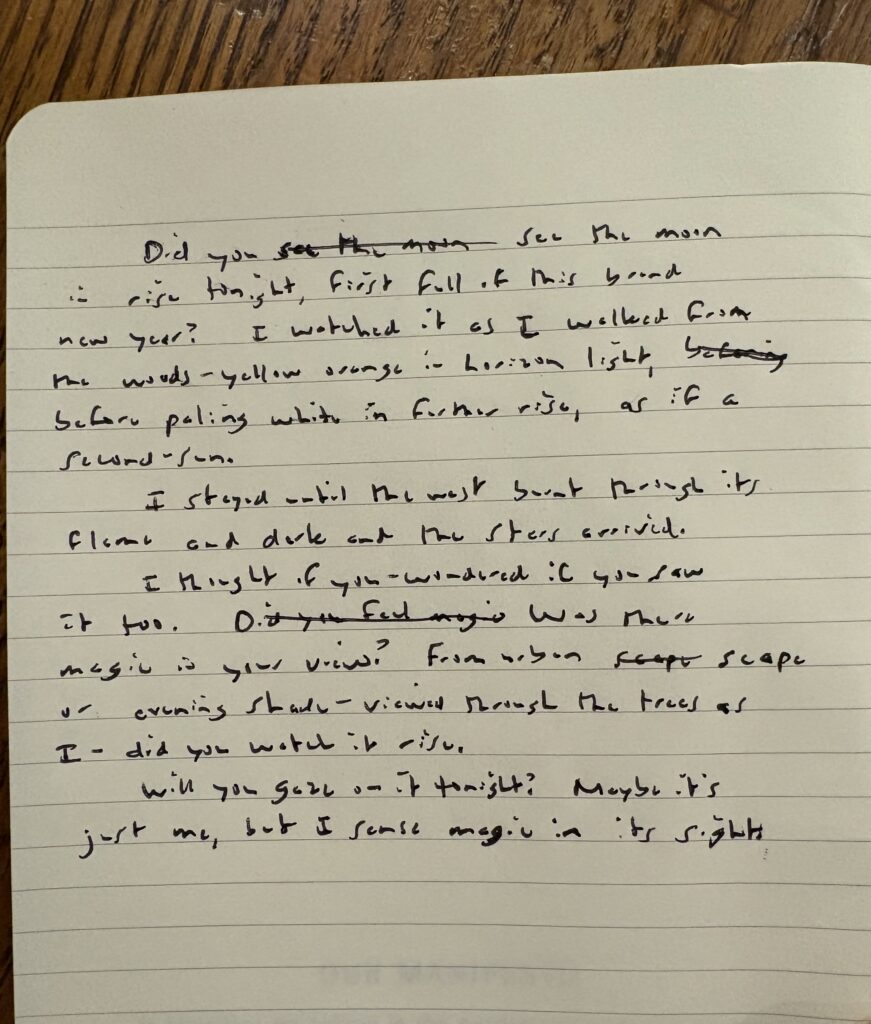 Did you see the moon see the moon
in rise tonight, first full of this brand
new year? I watched it as I walked from
the woods - yellow orange in horizon light,
before paling white in further rise, as if a
second-sun.
I stayed until the west burnt through its
flame and dark and the stars arrived.
I thought of you - wondered if you saw
it too. Did you feel magic Was there
magic in your view? From urban scape scape
or evening shade - viewed through the trees as
I - did you watch it rise.
Will you gaze on it tonight? Maybe it's
just me, but I sense magic in its sight.